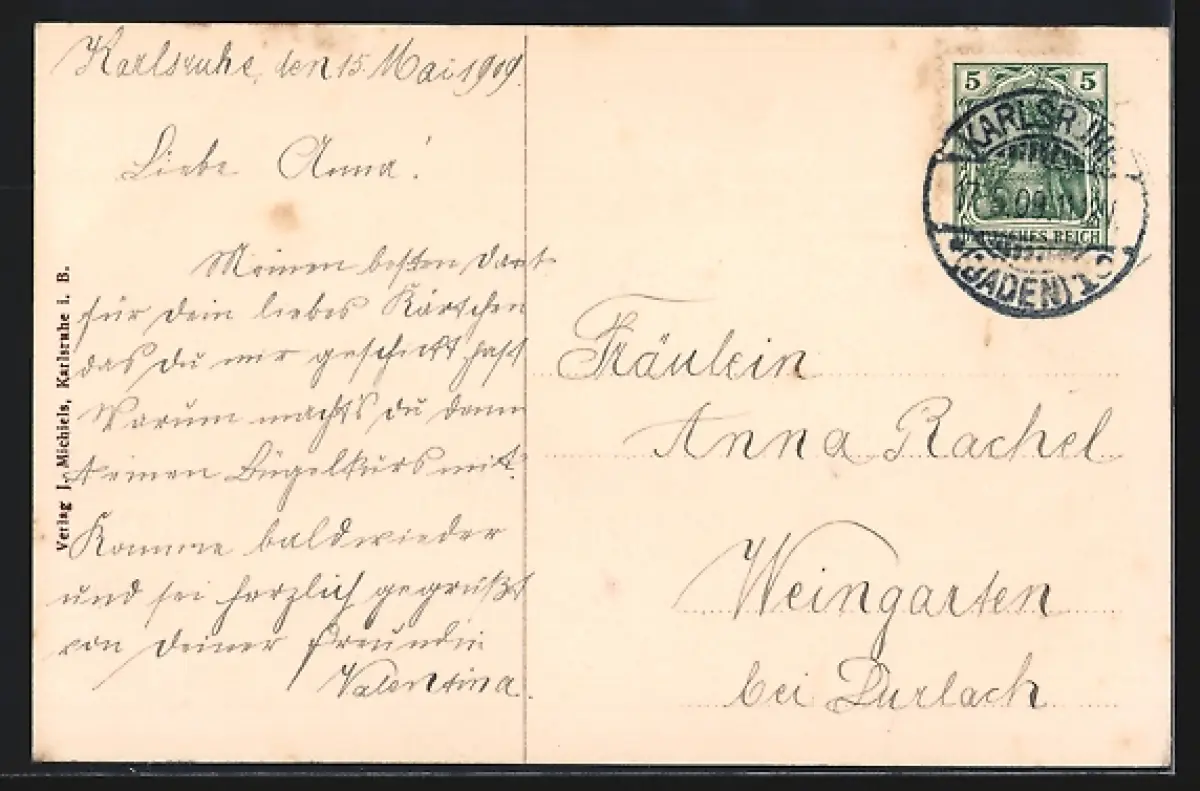 Karlsruhe, den 15. Mai 1909.
Liebe Anna!
Meinen besten Dank
für dein liebes Kärtchen
das du mir geschickt hast
Warum machts du denn
keinen Bügelkurs mit.
Komme bald wieder
und sei herzlich gegrüßt
von deiner Freundin
Valentina.
Verlag J. Michiels, Karlsruhe i. B.
5 5
DEUTSCHES REICH
KARLSRUHE
09
(BADEN)
Fräulein
Anna Rachel
Weingarten
bei Durlach